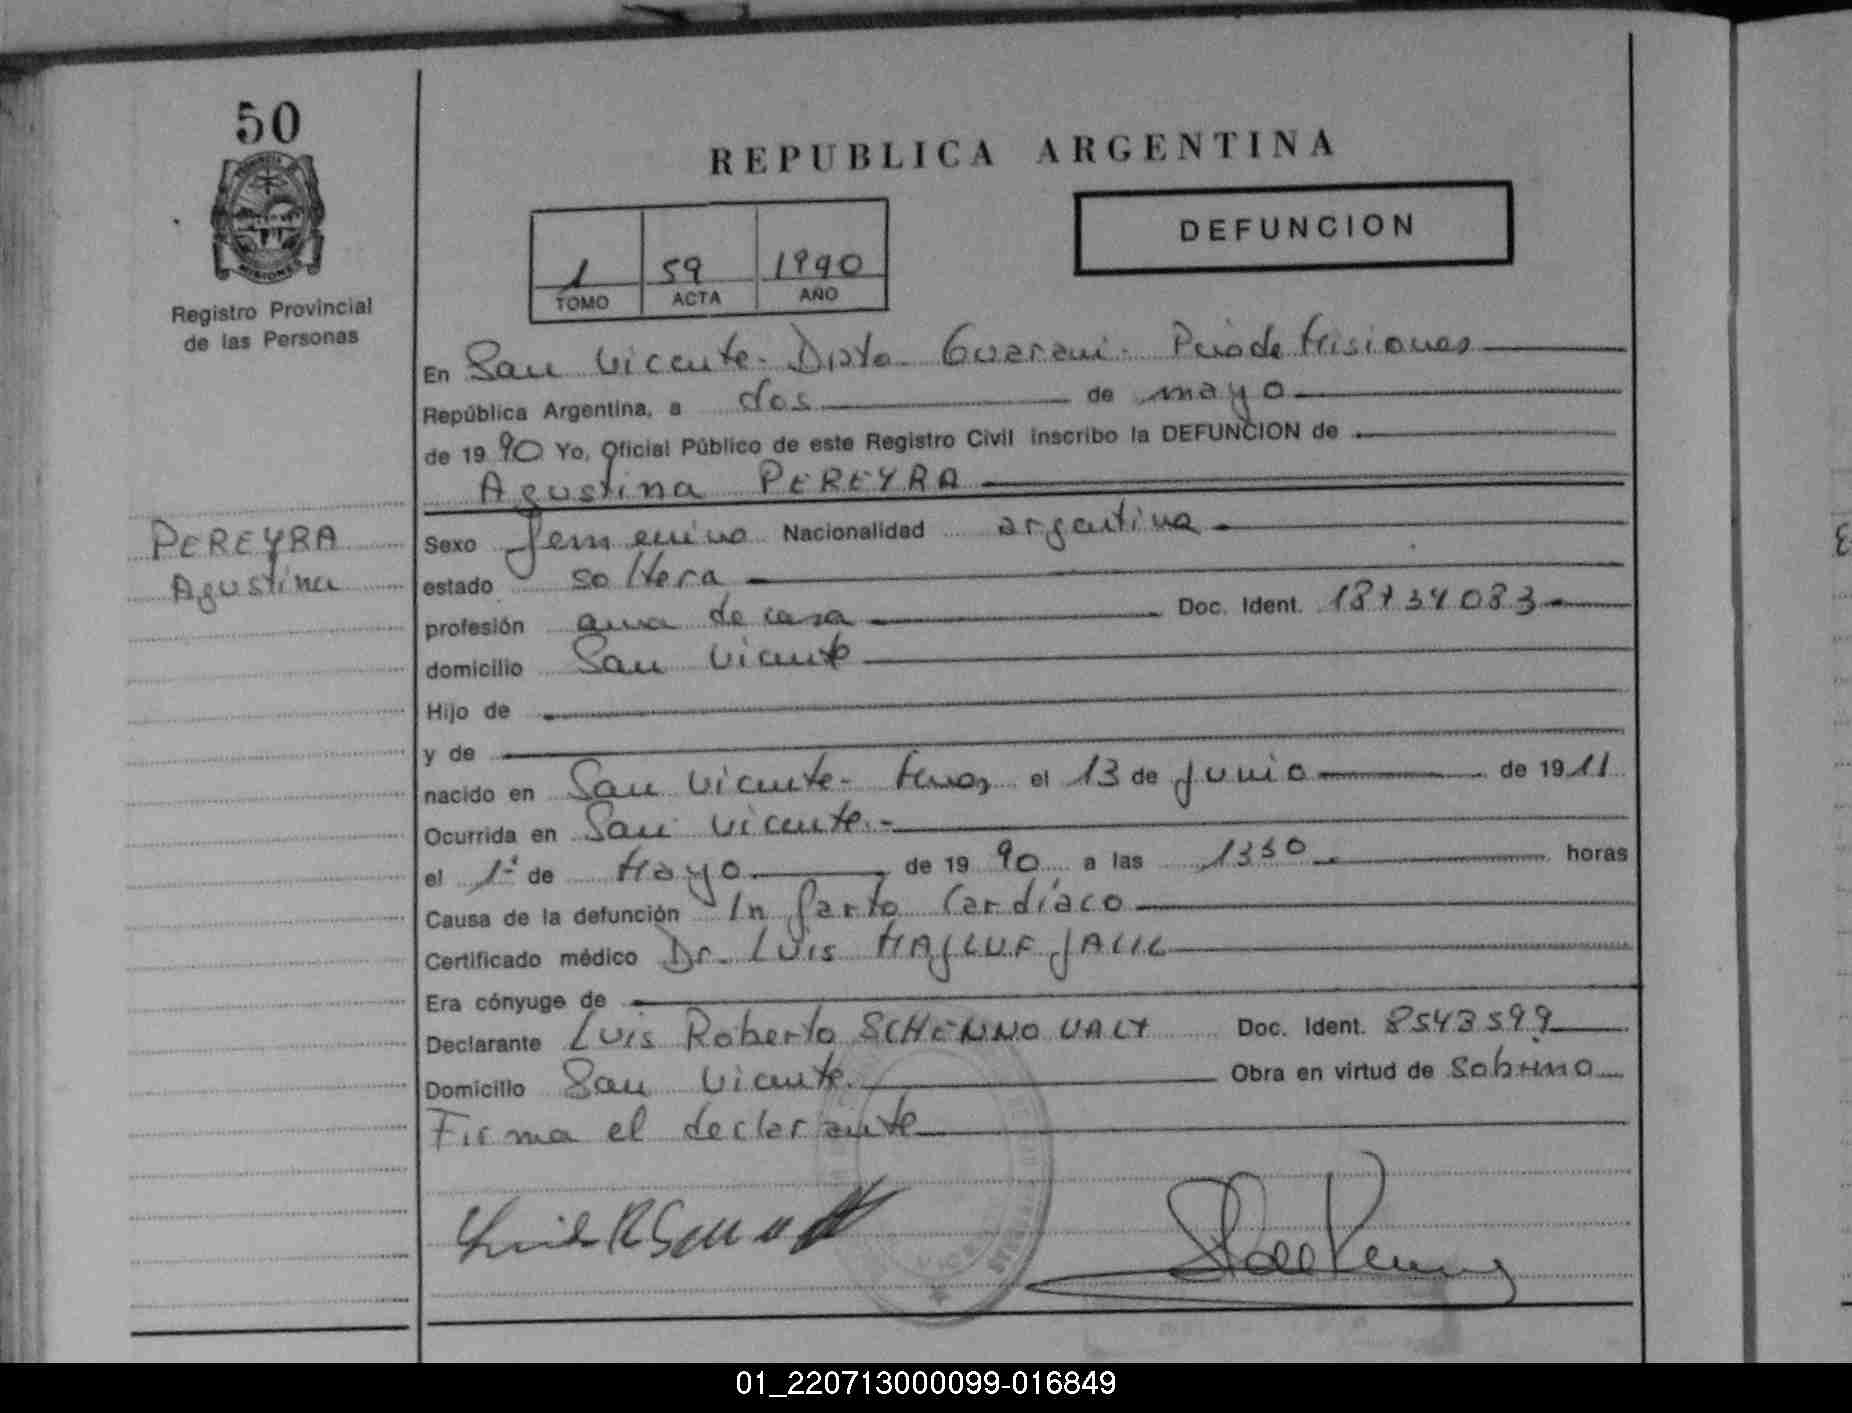 50
REPUBLICA ARGENTINA
DEFUNCION
1 59 1990
TOMO ACTA AÑO
Registro Provincial
de las Personas
En San Vicente - Dpto - Guarani - Pcia de Misiones
República Argentina, a dos de mayo
de 1990 Yo, Oficial Público de este Registro Civil inscribo la DEFUNCION de
Agustina PEREYRA
PEREYRA
Agustina
Sexo femenino Nacionalidad argentina
estado soltera
profesión ama de casa Doc. Ident.
domicilio San Vicente
Hijo de
y de
nacido en San Vicente - Mnes el 13 de junio de 1911
Ocurrida en San Vicente.-
el 1º de Mayo de 1990 a las 1330 horas
Causa de la defunción Infarto Cardíaco
Certificado médico Dr. LUIS MAJLUF JALIL
Era cónyuge de
Declarante Luis Roberto Doc. Ident. 8543599
Domicilio San Vicente. Obra en virtud de sobrino
Firma el declarante
01_220713000099-016849